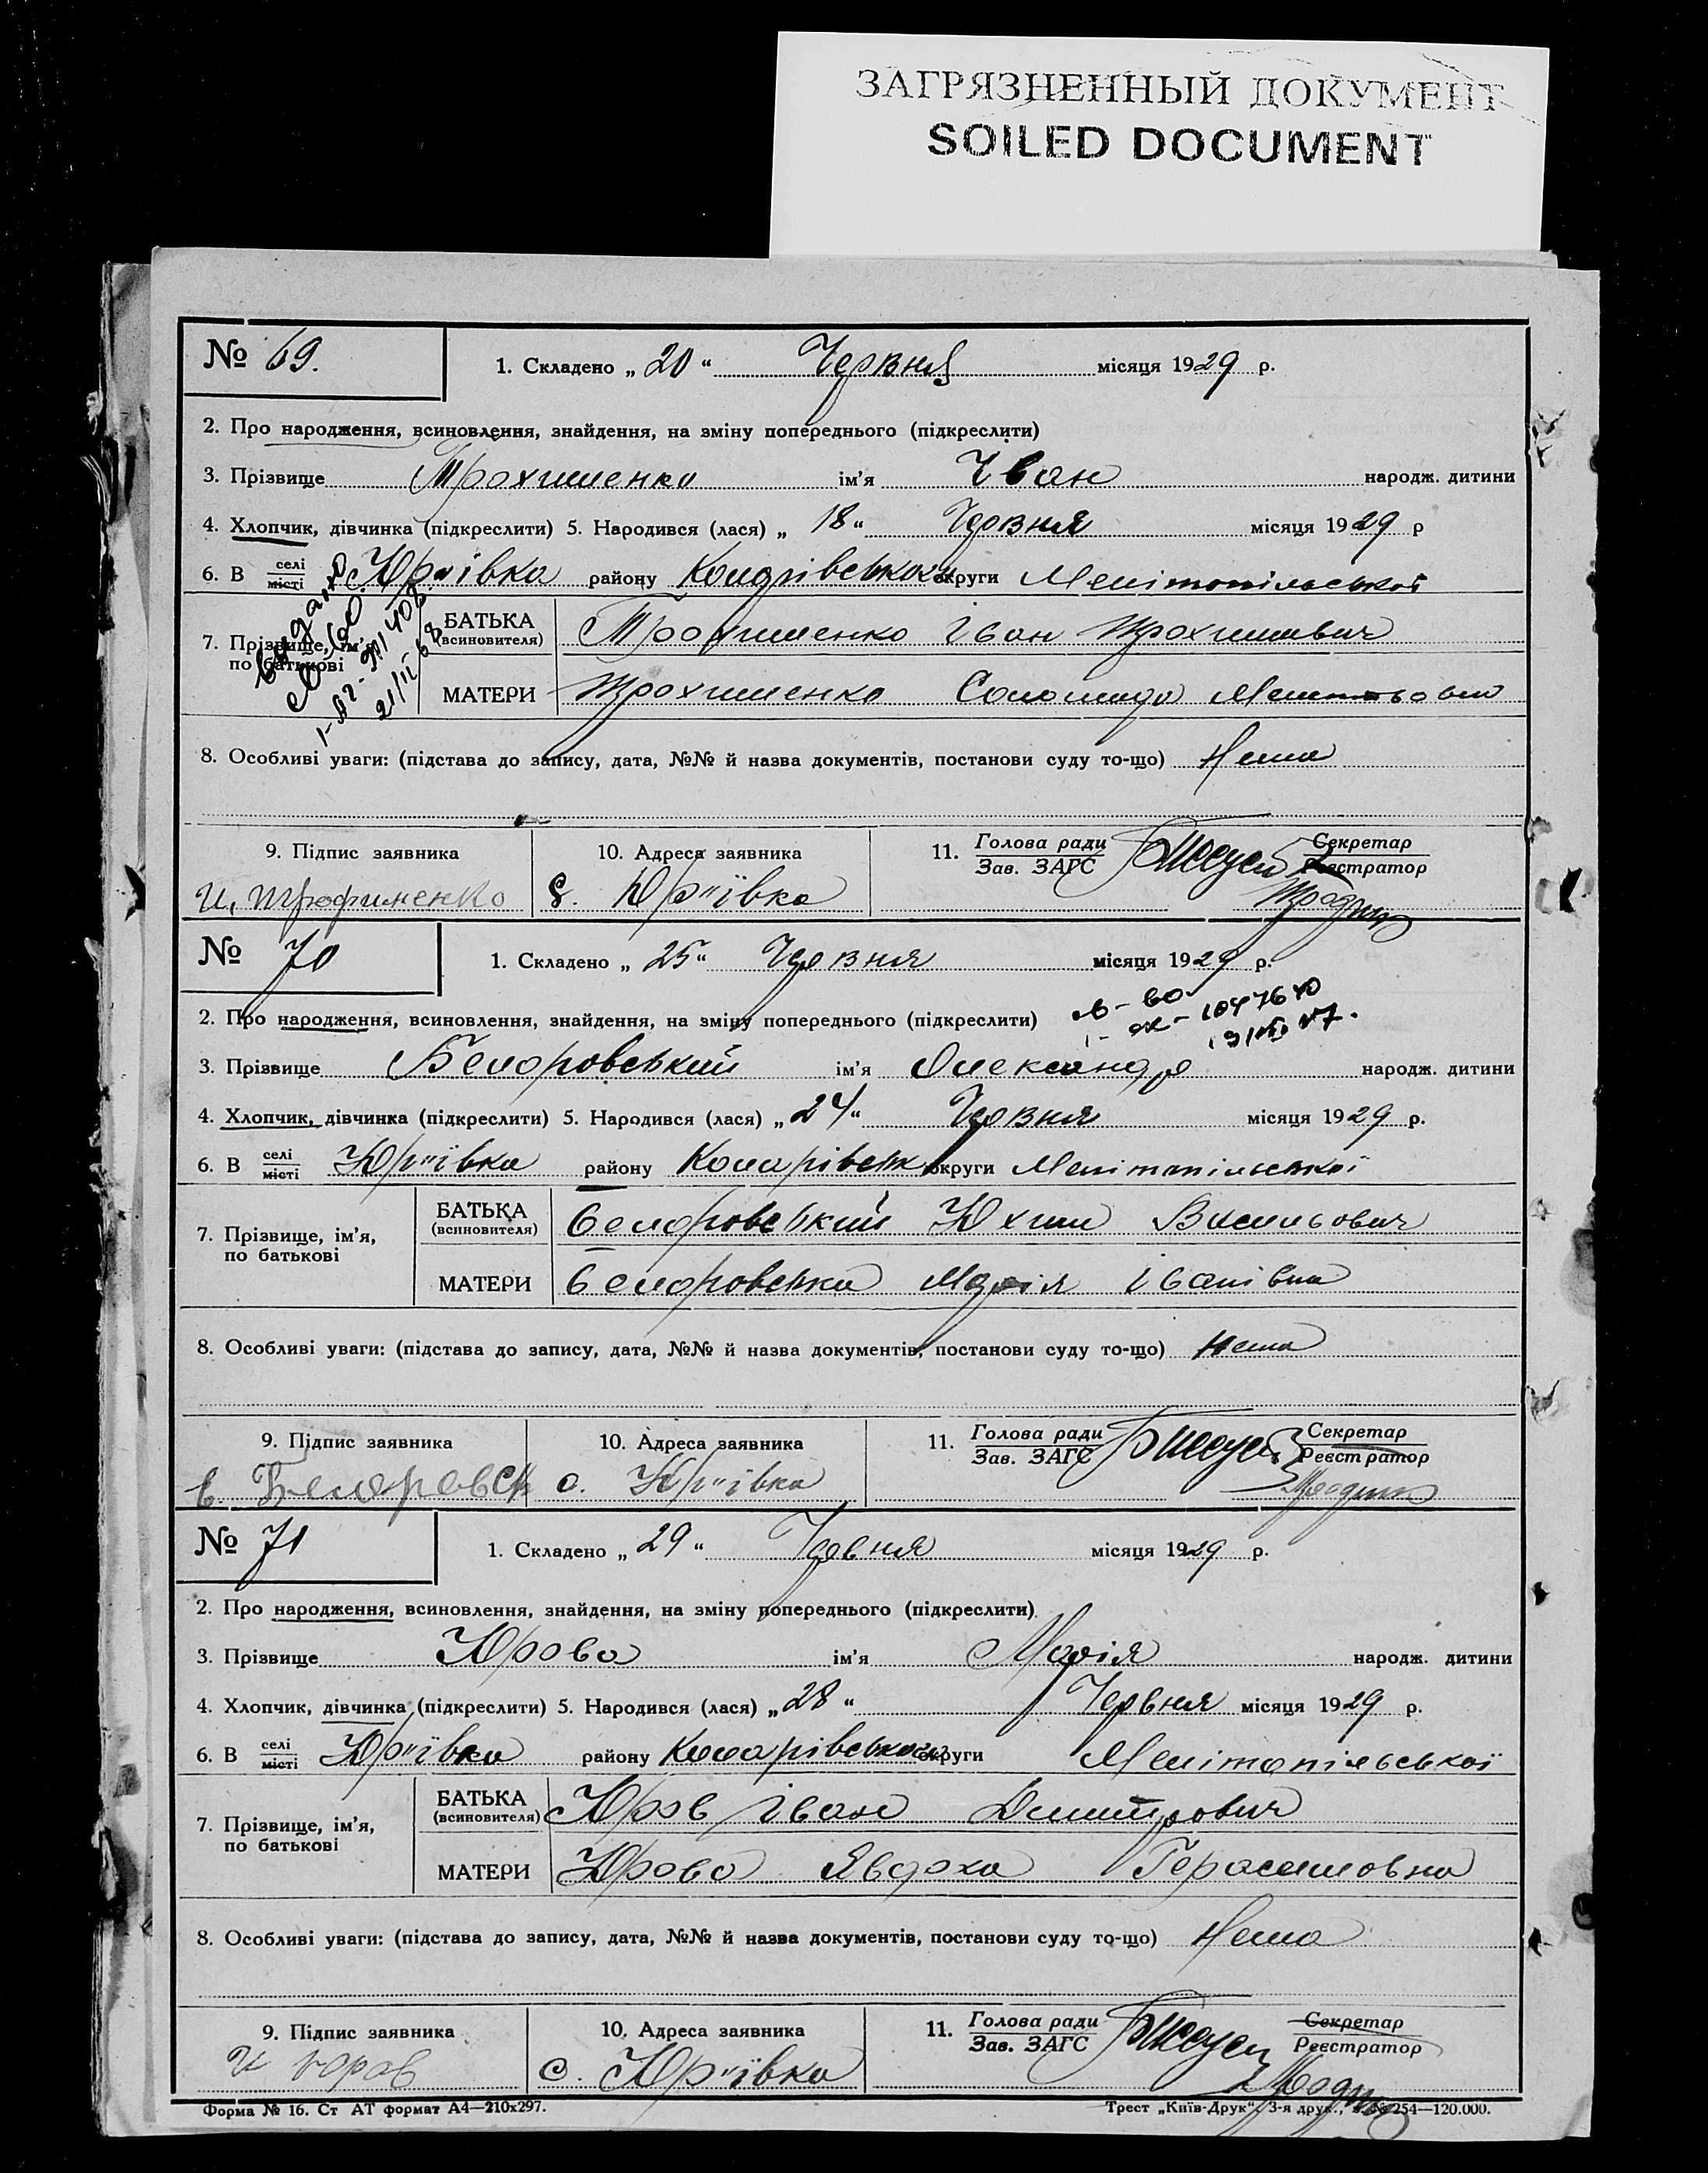 ЗАГРЯЗНЕННЫЙ ДОКУМЕНТ
SOILED DOCUMENT
№ 69. 1. Складено „ 20 “ Червня місяця 1929 р.
2. Про народження, всиновлення, знайдення, на зміну попереднього (підкреслити)
3. Прізвище Трохименко ім'я Іван народж. дитини
4. Хлопчик, дівчинка (підкреслити) 5. Народився (лася) „ 18 “ Червня місяця 1929 р
6. В селі місті Юр"ївка району округи Мелітопільської
видано
21/II 68
7. Прізвище, ім'я, по батькові
БАТЬКА (всиновителя) Трохименко Іван Трохимович
МАТЕРИ Трохименко
8. Особливі уваги: (підстава до запису, дата, №№ й назва документів, постанови суду то-що) Нема
9. Підпис заявника 10. Адреса заявника 11. Голова ради Зав. ЗАГС Секретар Реєстратор
И. Трофименко с. Юр"ївка
№ 70 1. Складено „ 25 “ Червня місяця 1929 р.
2. Про народження, всиновлення, знайдення, на зміну попереднього (підкреслити)
3. Прізвище ім'я Олександр народж. дитини
4. Хлопчик, дівчинка (підкреслити) 5. Народився (лася) „ 24 “ Червня місяця 1929 р.
6. В селі місті Юр"ївка району округи Мелітопільської
7. Прізвище, ім'я, по батькові
БАТЬКА (всиновителя) Юхим Васильович
МАТЕРИ Марія Іванівна
8. Особливі уваги: (підстава до запису, дата, №№ й назва документів, постанови суду то-що) Нема
9. Підпис заявника 10. Адреса заявника 11. Голова ради Зав. ЗАГС Секретар Реєстратор
с. Юр"ївка
№ 71 1. Складено „ 29 “ Червня місяця 1929 р.
2. Про народження, всиновлення, знайдення, на зміну попереднього (підкреслити)
3. Прізвище Юрова ім'я Марія народж. дитини
4. Хлопчик, дівчинка (підкреслити) 5. Народився (лася) „ 28 “ Червня місяця 1929 р.
6. В селі місті Юр"ївка району округи Мелітопільської
7. Прізвище, ім'я, по батькові
БАТЬКА (всиновителя) Юров Іван Дмитрович
МАТЕРИ Юрова Явдоха Герасимовна
8. Особливі уваги: (підстава до запису, дата, №№ й назва документів, постанови суду то-що) Нема
9. Підпис заявника 10. Адреса заявника 11. Голова ради Зав. ЗАГС Секретар Реєстратор
И Юров с. Юр"ївка
Форма № 16. Ст АТ формат А4—210х297. Трест „Київ-Друк“, 3-я друк., 254—120.000.